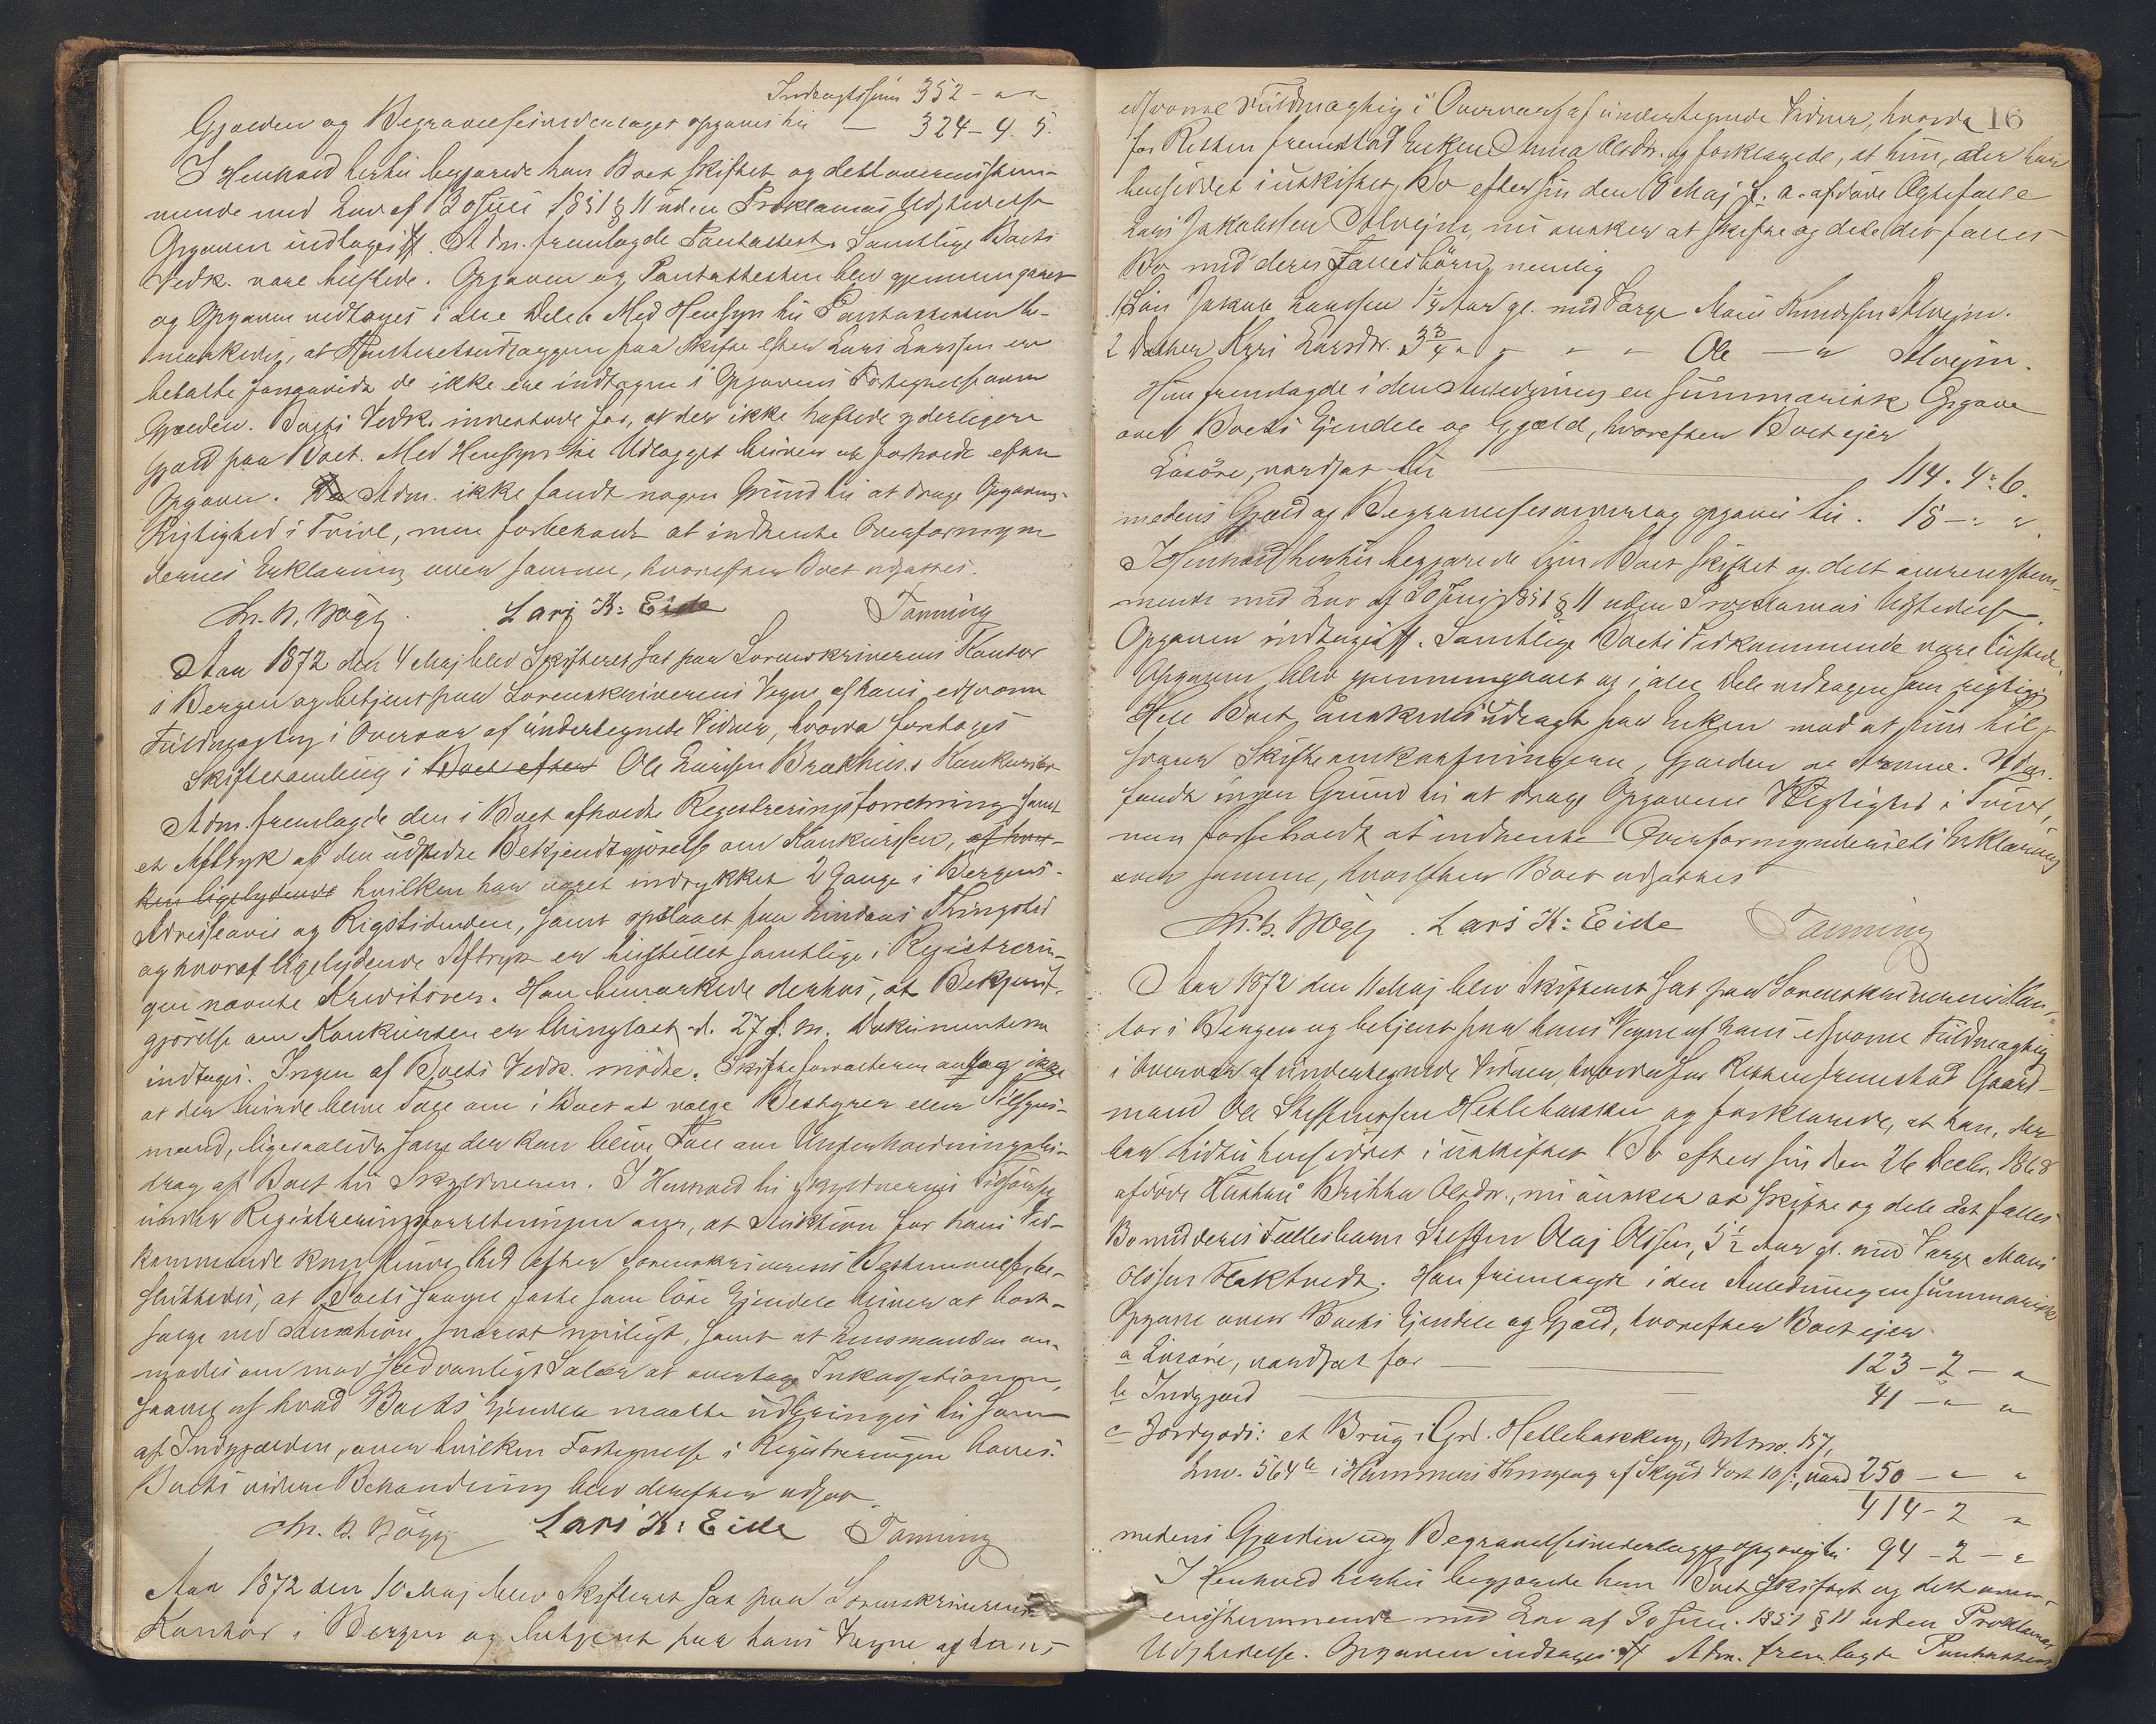 Indtægtssum 352 - " "
Gjælden og Begravelsesomkostninger opgaves til — 324 - 4. 5.
I Henhold hertil begjærede han Boet skiftet og delt overensstem-
mende med Lov af 30 Juli 1851 § 11 uden Proklamas Udstedelse
Opgaven indtages ff. Adm. fremlagde Pantattest. Samtlige Boets
Vedk. vare tilstede. Opgaven og Pantattesten blev gjennemgaaet
og Opgaven vedtages i alle Dele. Med Hensyn til Pantattesten be-
mærkedes, at Panteretsudlæggene paa Skifte efter Lars Larssen ere
betalte forsaavidt de ikke ere indtagne i Opgavens Fortegnelse over
Gjælden. Boets Vedk. inestode for, at der ikke heftede yderligere
Gjæld paa Boet. Med Hensyn til Udlægget bliver at forholde efter
Opgaven. Adm. ikke fandt nogen Grund til at drage Opgavens
Rigtighed i Tvivl, men forbeholdt at indhente Overformyn-
dernes Erklæring over samme, hvorefter Boet udsattes.
M. N. Bøgh. Lars K: Eide Tanning
Aar 1872 den 4 Maj blev Skifteret sat paa Sorenskriverens Kontor
i Bergen og betjent paa Sorenskriverens Vegne af hans edsvorne
Fuldmægtig i Overvær af undertegnede Vidner, hvorda foretoges
Skiftesamling i Boet efter Ole Larssen Brækhus's Konkursbo
Adm. fremlagde den i Boet afholdte Registreringsforretning samt
et Aftryk af den udstedte Bekjendtgjørelse om Konkursen, af hvil-
ken ligelydende hvilken har været indrykket 2 Gange i Bergens-
Adresseavis og Rigstidenden, samt opslaaet paa Lindaas Thingsted
og hvoraf ligelydende Aftryk er tilstillet samtlige i Registrerin-
gen nævnte Kreditorer. Han bemærkede derhos, at Bekjendt-
gjørelse om Konkursen er thinglæst d. 27 f. M. Dokumenterne
indtages. Ingen af Boets Vedk. mødte. Skifteforvalteren antag ikke
at der kunde blive Tale om i Boet at vælge Bestyrer eller Tilsyns-
mand, ligesaalidt som der kan blive Tale om Underholdningsbi-
drag af Boet til Skyldneren. I Henhold til Skyldnerens Tilførsel
under Registreringsforretningen om, at Auktion for hans Ved-
kommende kan finde Sted efter Sorenskriverens Bestemmelse be-
sluttedes, at Boets saavel faste som løse Ejendele bliver at bort-
sælge ved Auktion snarest muligt, samt at Lensmanden an-
modes om mod sædvanligt Salær at overtage Inkassationen,
saavel af hvad Boets Ejendele maatte udbringes til som
af Indgjælden, over hvilken Fortegnelse i Registreringen haves.
Boets videre Behandling blev derefter udsat.
M. N. Bøgh Lars K: Eide Tanning
Aar 1872 den 10 Maj blev Skifteret sat paa Sorenskriverens
Kontor i Bergen og betjent paa hans Vegne af hans
16
edsvorne Fuldmægtig i Overvær af undertegnede Vidner, hvorda
for Retten fremstod Enken Anna Olsdr. og forklarede, at hun, der har
hensiddet i uskiftet Bo efter sin den 8 Maj f. a. afdøde Ægtefælle
Lars Jakobssen Alvejm, nu ønsker at skifte og dele det fælles
Bo med deres Fællesbørn, nemlig
1 Søn Jakob Larssen 1 1/4 Aar gl. med Værge Mons Knudssen Alvejm.
2 Datter Kari Larsdr. 3 3/4 " " " " Ole — " Alvejm.
Hun fremlagde i den Anledning en summarisk Opgave
over Boets Ejendele og Gjæld, hvorefter Boet ejer
Løsøre, værdsat til 114. 4: 6.
medens Gjæld og Begravelsesomkostning opgaves til. 18 - " "
I Henhold hertil begjærede hun Boet skiftet og delt overensstem-
mende med Lov af 30 Juli 1851 § 11 uden Proklamas Udstedelse.
Opgaven indtages ff. Samtlige Boets Vedkommende vare tilstede.
Opgaven blev gjennemgaaet og i alle Dele vedtagen som rigtig.
Hele Boet ønskedes udlagt paa Enken mod at hun til-
svarer Skifteomkostningerne, Gjælden og Arvene. Adm.
fandt ingen Grund til at drage Opgavens Rigtighed i Tvivl,
men forbeholdt at indhente Overformynderiets Erklæring
over samme, hvorefter Boet udsattes
M. N. Bøgh. Lars K: Eide Tanning
Aar 1872 den 11 Maj blev Skifteret sat paa Sorenskriverens Kon-
tor i Bergen og betjent paa hans Vegne af hans edsvorne Fuldmægtig
i Overvær af undertegnede Vidner, hvorda for Retten fremstod Gaard-
mand Ole Steffenssen Hellebakken og forklarede, at han, der
har hidtil hensiddet i uskiftet Bo efter sin den 26 Decbr. 1868
afdøde Hustru Brithe Olsdr., nu ønsker at skifte og dele det fælles
Bo med deres Fællesbarn Steffen Olaj Olssen, 5 1/2 Aar gl. med Værge Mons
Olssen Flaktvedt. Han fremlagde i den Anledning en summarisk
Opgave over Boets Ejendele og Gjæld, hvorefter Boet ejer
a Løsøre, værdsat for — 123 - 2 - "
b Indgjæld 41 - " "
c Jordgods: et Brug i Grd. Hellebakken, Mtno. 157,
Lno. 564b i Hammers Thinglag af Skyld 4 ort 10 ß, værd 250 - " "
414 - 2 "
medens Gjælden og Begravelsesomkostninger opgaves til 94 - 2 - "
I Henhold hertil begjærede han Boet skiftet og delt over-
ensstemmende med Lov af 30 Juli 1851 § 11 uden Proklamas
Udstedelse. Opgaven indtages ff Adm. fremlagde Pantattest